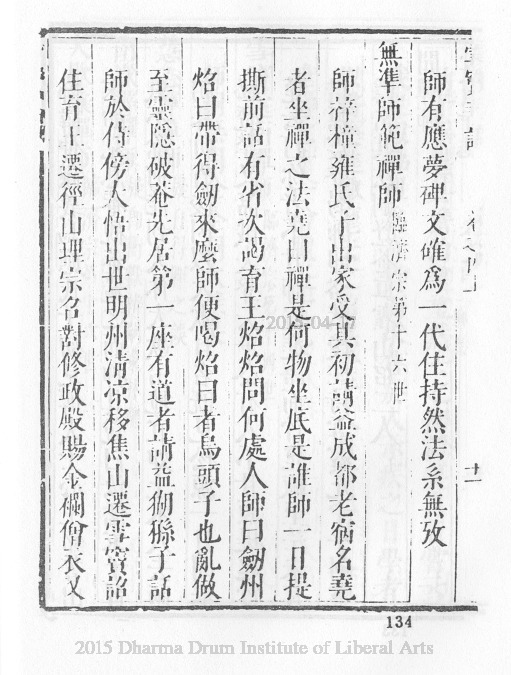 師有應夢碑文確為一代住持然法系無攷
無準師範禪師 臨濟宗第十六世
師梓橦雍氏子出家受具初請益成都老宿名堯
者坐禪之法堯曰禪是何物坐底是誰師一日提
撕前話有省次謁育王焰焰問何處人師曰劒州
焰曰帶得劒來麼師便喝焰曰者烏頭子也亂做
至靈隱破菴先居第一座有道者請益猢猻子話
師於侍傍大悟出世明州清凉移焦山遷雪竇詔
住育王遷徑山理宗召對修政殿賜金襴僧衣又
十一
134
2015 Dharma Drum Institute of Liberal Arts